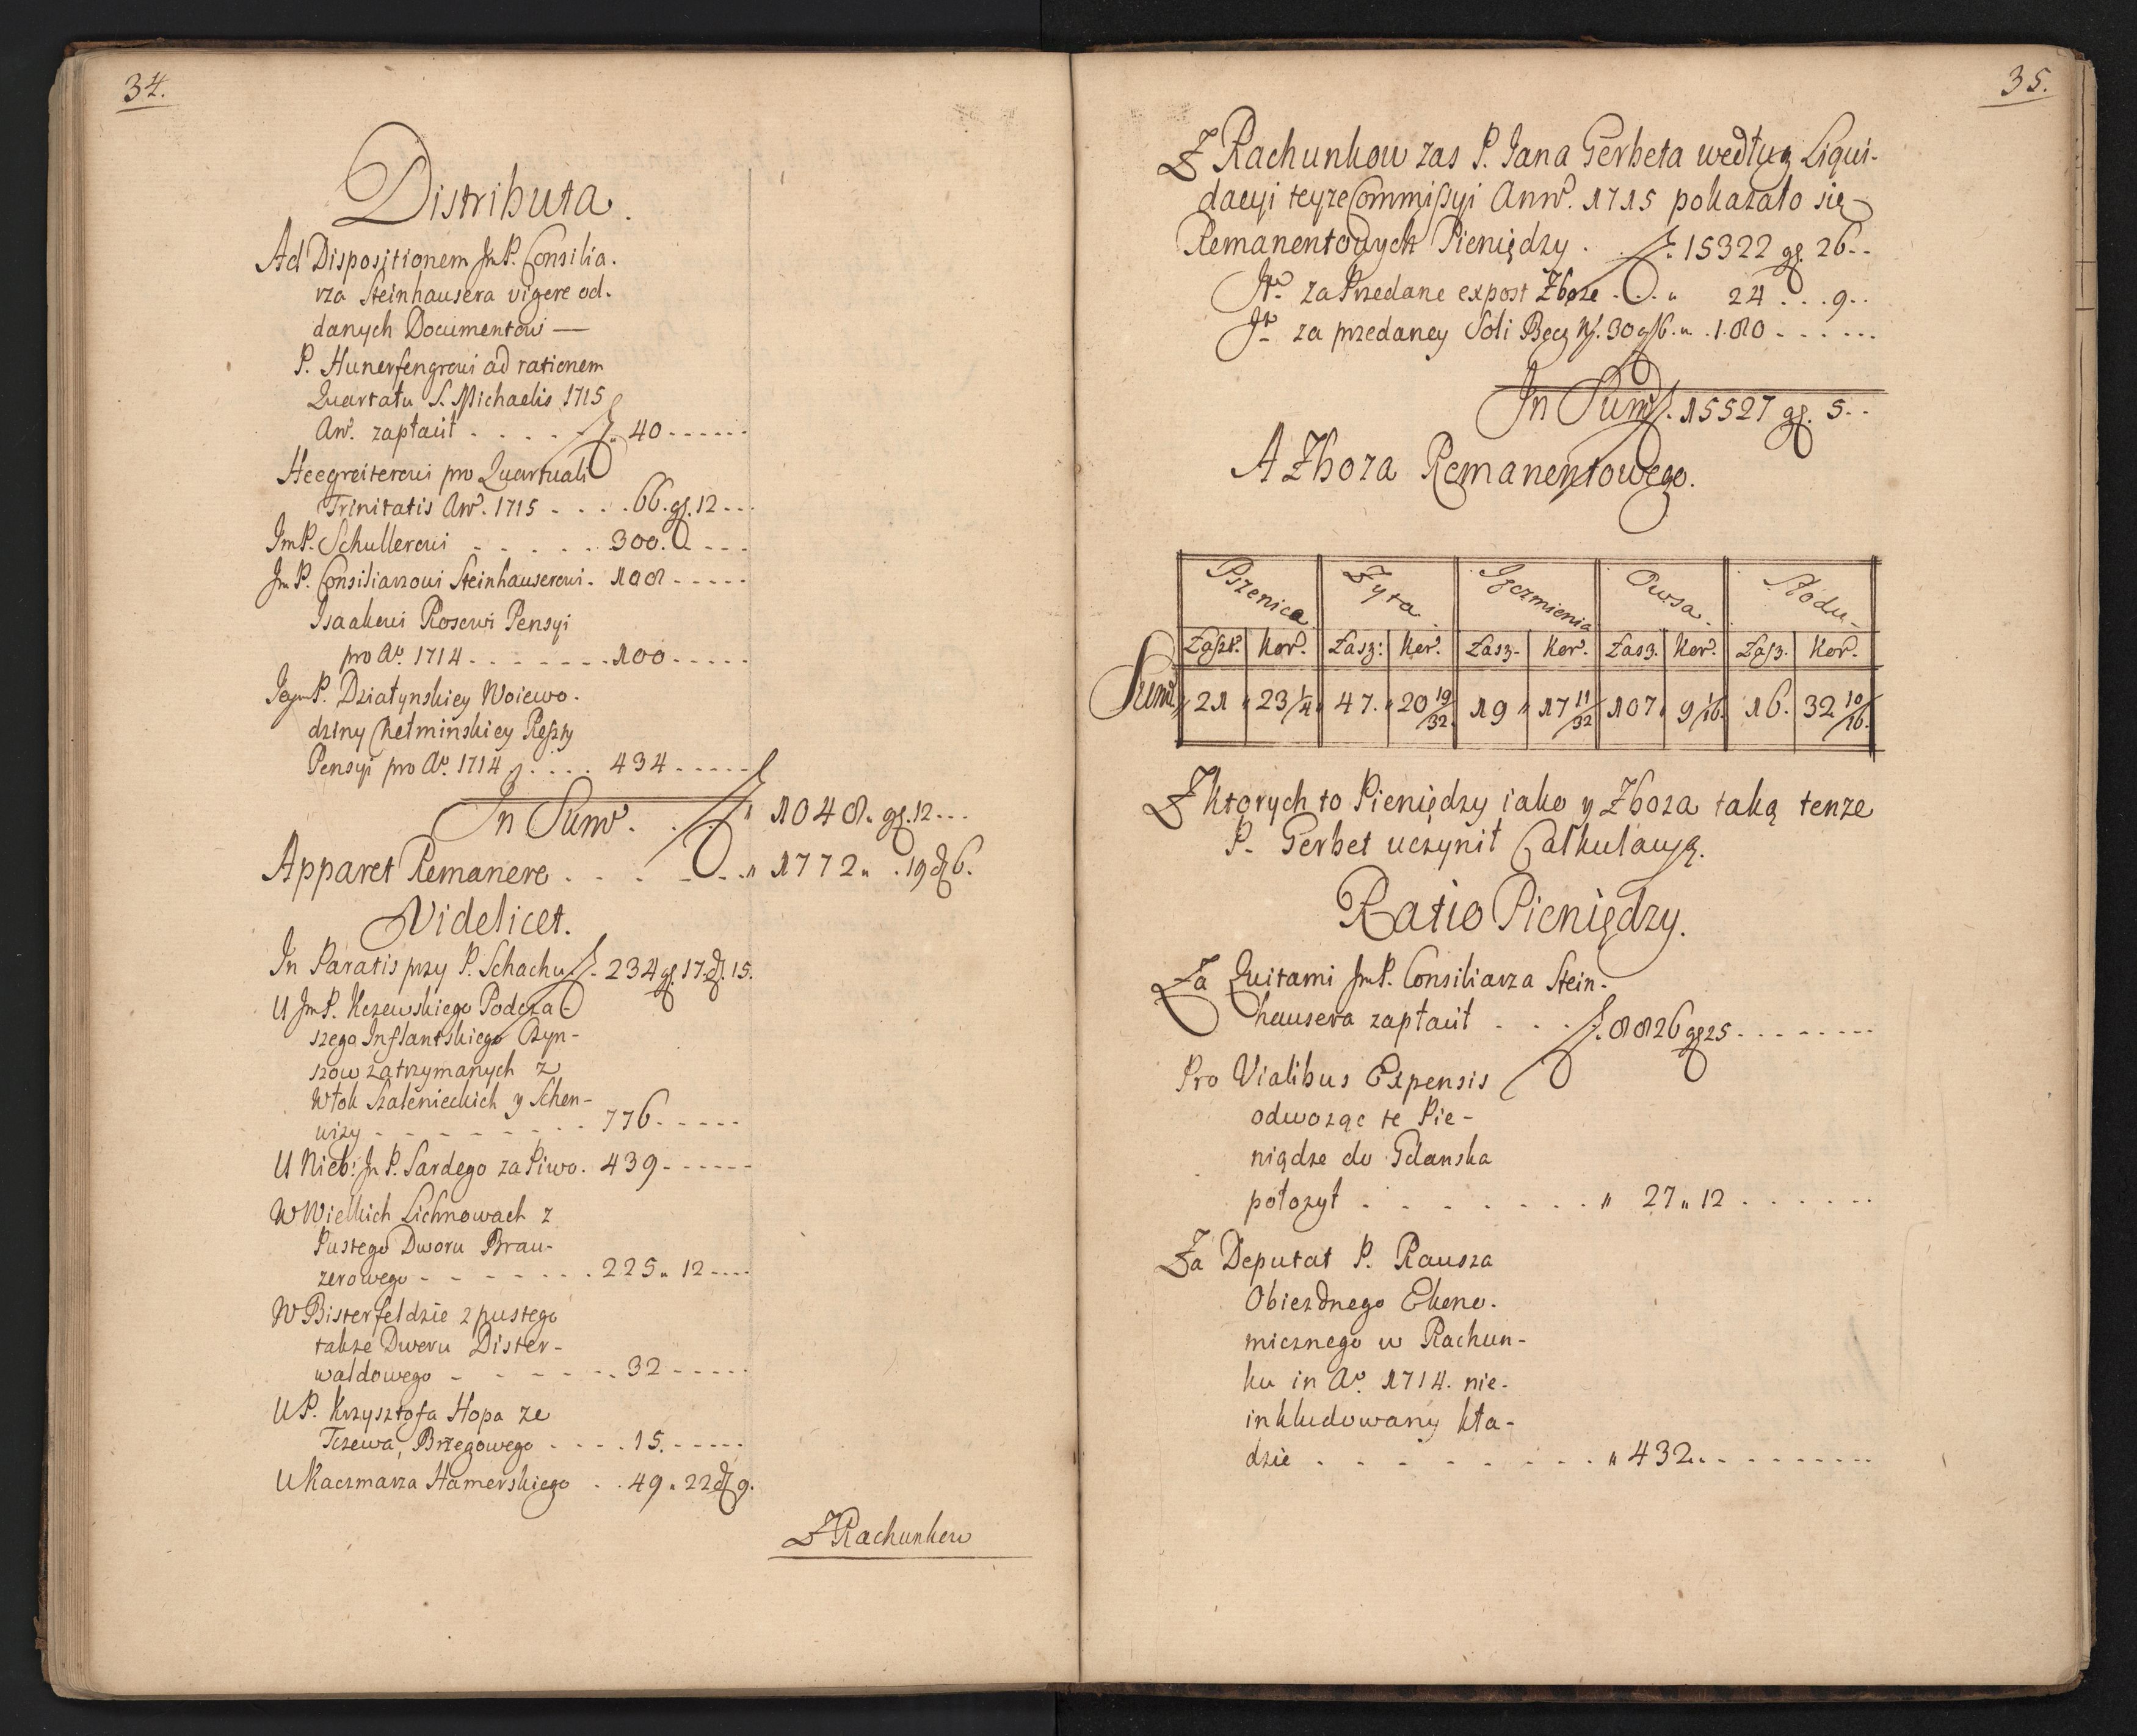 34.
Distributa.
Ad Dispositionem JmP. Consilia-
rza Steinhausera vigore od-
danych Documentow —
P. Hunerfengrowi ad rationem
Quartału S. Michaelis 1715
Anō. zapłacił . . . . f. 40 - - - - - -
Heegreiterowi pro Quartuali
Trinitatis Anō. 1715 - . . . 66. gł. 12 - - -
JmP. Schullerowi - . . . . . 300. - - -
JmP. Consiliarzowi Steinhauserowi. 108 - - - - -
Isaakowi Rosowi Pensyi
pro Aō. 1714 . . . . . . . 100 - - - - -
JeymP. Działynskiey Woiewo-
dziny Chełminskiey Reszty
Pensyi pro Aō. 1714 . . . . 434 - - - - -
In Sum̄. . . f. " 1048 " gł. 12 - - -
Apparet Remanere . . . . . " 1772 " . 19 ₰ 6.
Videlicet.
In Paratis przy P. Schachu f. 234 gł. 17 ₰. 15.
U JmP. Kczewskiego Podcza-
szego Inflantskiego Czyn-
szow zatrzymanych z
Włok Szalenieckich y Schen-
wizy - - - - - - - - 776 - - - - -
U Nieb: JmP. Sardego za Piwo. 439 - - - - - -
W Wielkich Lichnowach z
Pustego Dworu Brau-
zerowego - - - - - - . 225 " 12 - - - -
W Bisterfeldzie z pustego
także Dworu Dister-
waldowego - - - - - - . 32 - - - - -
U P. Krzysztofa Hopa ze
Tczewa, Brzegowego - - - . 15. - - - - -
U Kaczmarza Hamerskiego . . 49 " 22 ₰ 9.
Z Rachunkow
35.
Z Rachunkow zas P. Jana Gerbeta według Liqui-
dacyi teyze Commissyi Annō. 1715 pokazało się
Remanentowych Pieniędzy . . f. 15322 gł. 26 - -
Jtō za Przedane expost Zboze . . . " 24 . . . 9 - .
Jt. za przedaney Soli Becz N. 30 a f 6. " . 180 - - - - - -
In Sum̄ f. 15527 gł. 5 - -
A Zboza Remanentowego.
Pszenica Zyta Jęczmienia Owsa Słodu
Łaszt. Kor. Łasz: Kor. Łasz. Kor. Łasz. Kor. Łasz. Kor.
Sum̄ " 21 " 23 1/4 " 47. " 20 19/32. 19 " 17 11/32 107 " 9 1/16. 16. 32 10/16.
Z ktorych to Pieniędzy iako y Zboza taką tenze
P. Gerbet uczynił Calkulacyą.
Ratio Pieniędzy.
Za Quitami JmP. Consiliarza Stein-
hausera zapłacił . . . f. 8826 gł 25 - - - - - - - -
Pro Vialibus Expensis
odwoząc te Pie-
niądze do Gdanska
położył . . . . . . . " 27 " 12 - - - - - - -
Za Deputat P. Rausza
Obiezdnego Ekono-
micznego w Rachun-
ku in Aō. 1714. nie-
inkludowany kła-
dzie . . . . . . . . " 432 " - - - - - - - - -